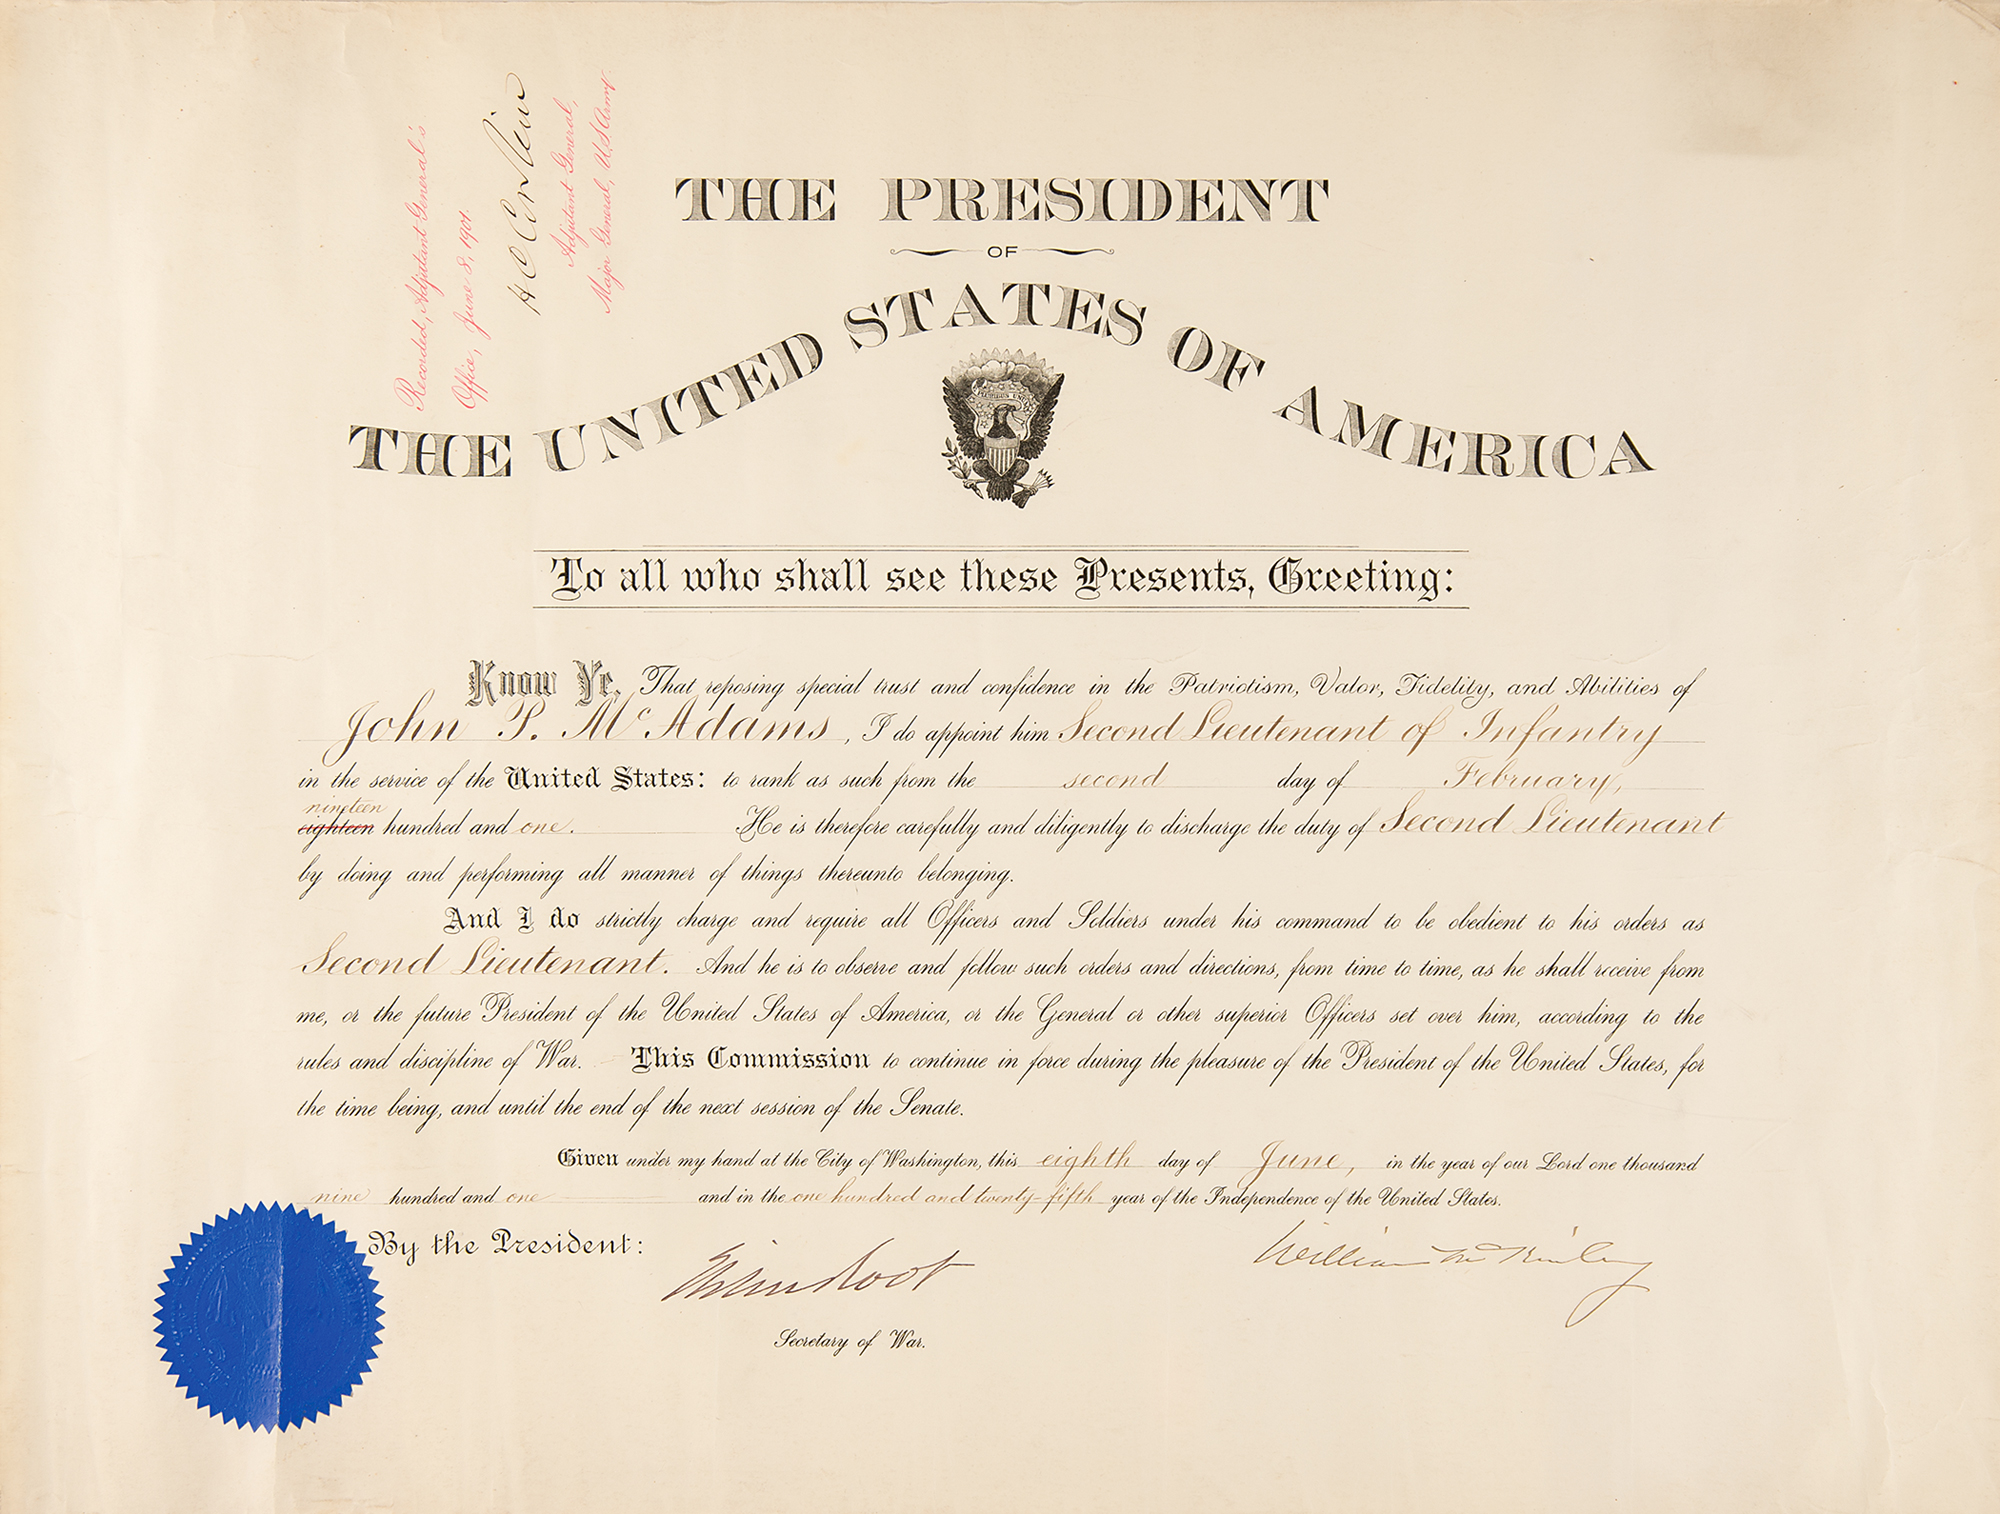 Recorded, Adjutant General's
Office, June 8, 1901.
H C Corbin
Adjutant General,
Major General, U.S. Army
THE PRESIDENT
OF
THE UNITED STATES OF AMERICA
To all who shall see these Presents, Greeting:
Know Ye, That reposing special trust and confidence in the Patriotism, Valor, Fidelity, and Abilities of
John P. McAdams, I do appoint him Second Lieutenant of Infantry
in the service of the United States: to rank as such from the second day of February,
nineteen
eighteen hundred and one. He is therefore carefully and diligently to discharge the duty of Second Lieutenant
by doing and performing all manner of things thereunto belonging.
And I do strictly charge and require all Officers and Soldiers under his command to be obedient to his orders as
Second Lieutenant. And he is to observe and follow such orders and directions, from time to time, as he shall receive from
me, or the future President of the United States of America, or the General or other superior Officers set over him, according to the
rules and discipline of War. This Commission to continue in force during the pleasure of the President of the United States, for
the time being, and until the end of the next session of the Senate.
Given under my hand at the City of Washington, this eighth day of June, in the year of our Lord one thousand
nine hundred and one and in the one hundred and twenty-fifth year of the Independence of the United States.
By the President:
William McKinley
Elihu Root
Secretary of War.